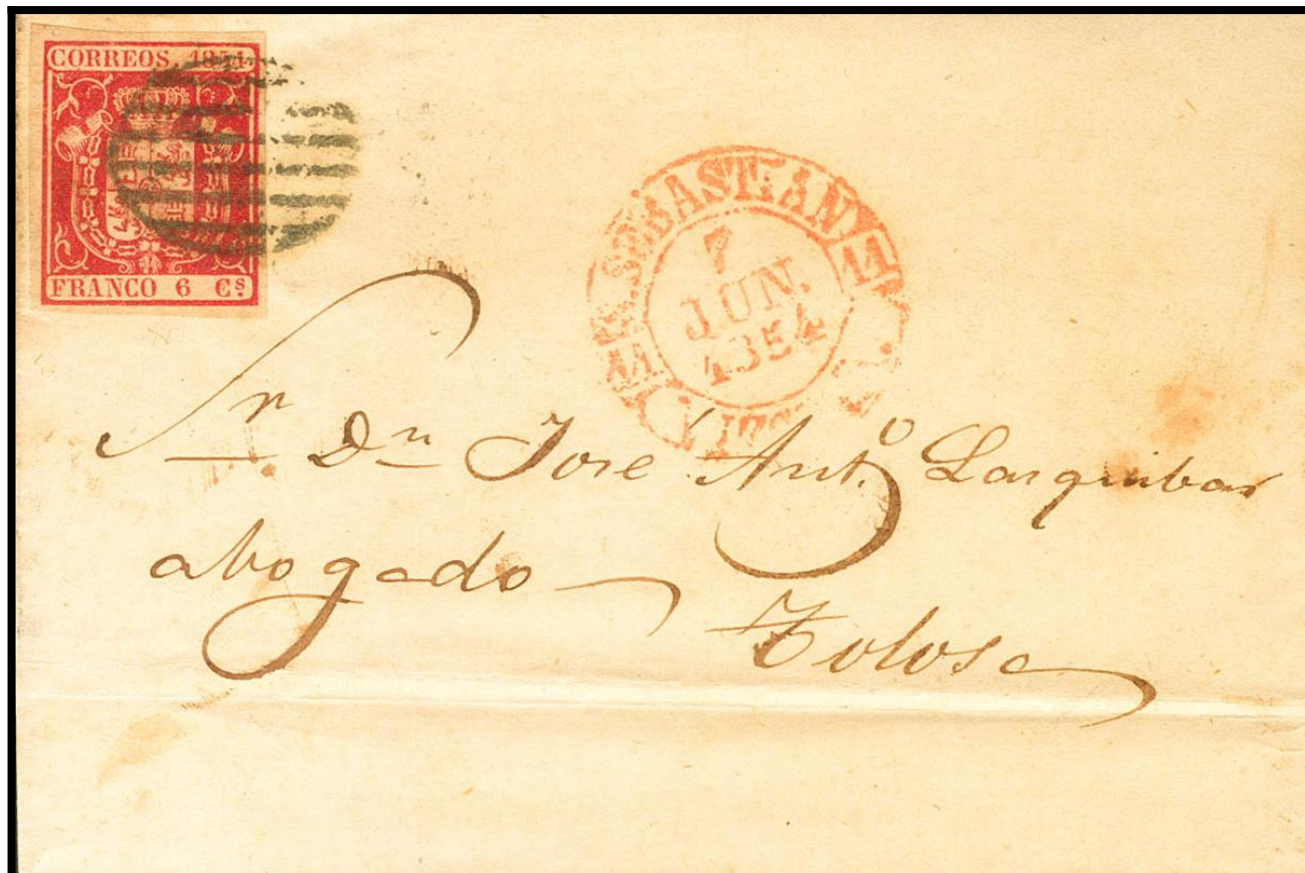 CORREOS 1854.
FRANCO 6 Cs.
S. SEBASTIAN 11
7
JUN.
1854
Sr Dn José Anto Larquibar
abogado
Tolosa